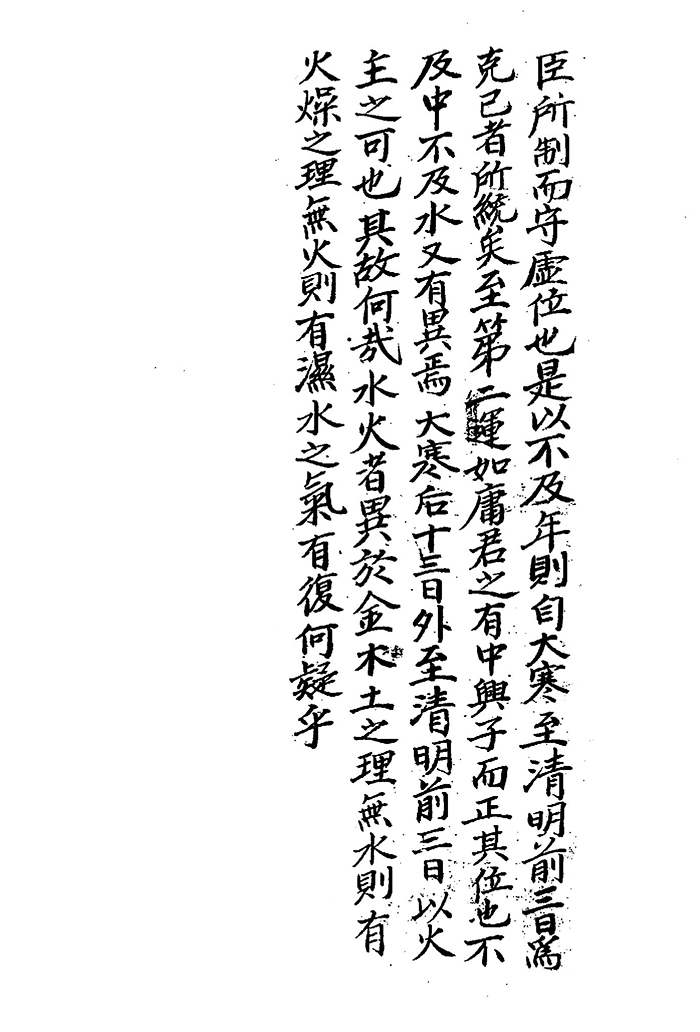 臣所制而守虛位也是以不及年則自大寒至清明前三日爲
克己者所統矣至第二運如庸君之有中興子而正其位也不
及中不及水又有異焉大寒后十三日外至清明前三日以火
主之可也其故何哉水火者異於金木土之理無水則有
火燥之理無火則有濕水之氣有復何疑乎